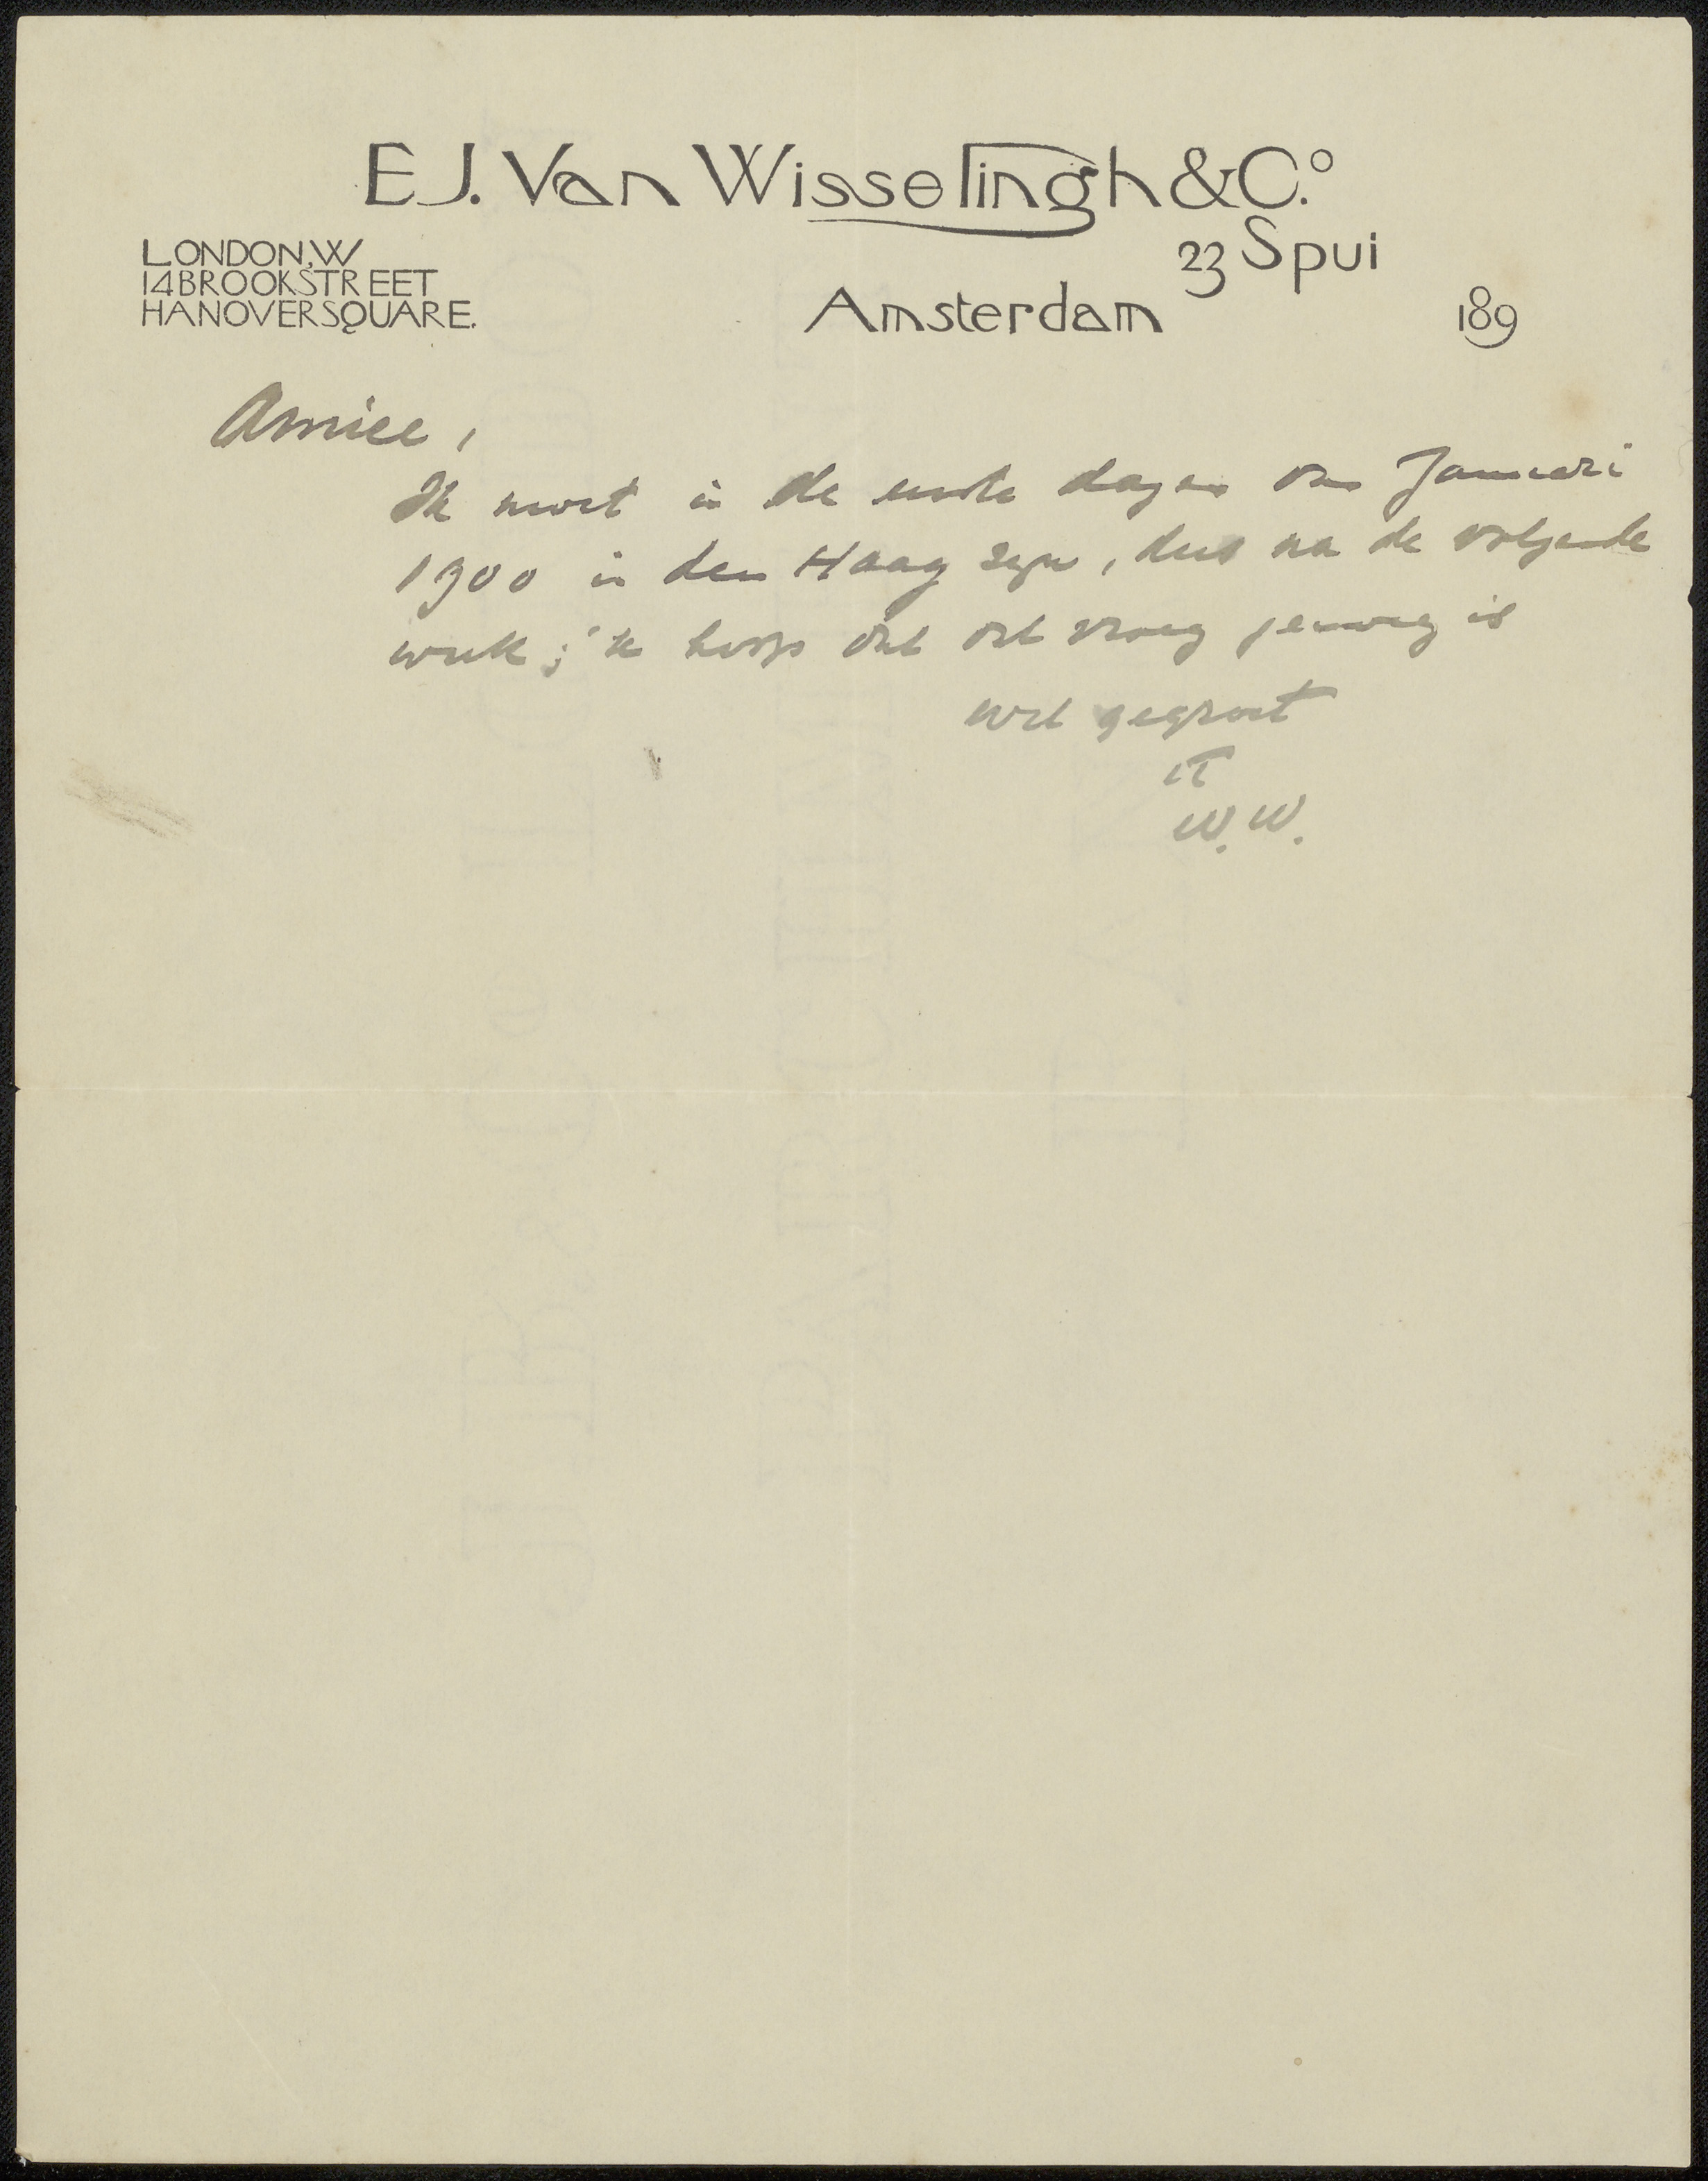 E J. Van Wisselingh & C.º
23 Spui
LONDON, W
14 BROOKSTREET
HANOVERSQUARE.
Amsterdam 189
Amice,
Ik moet in de eerste dagen van Januari
1900 in den Haag zijn, dus na de volgende
week; 'k hoop dat dat vroeg genoeg is
wel gegroet
tt
W. W.